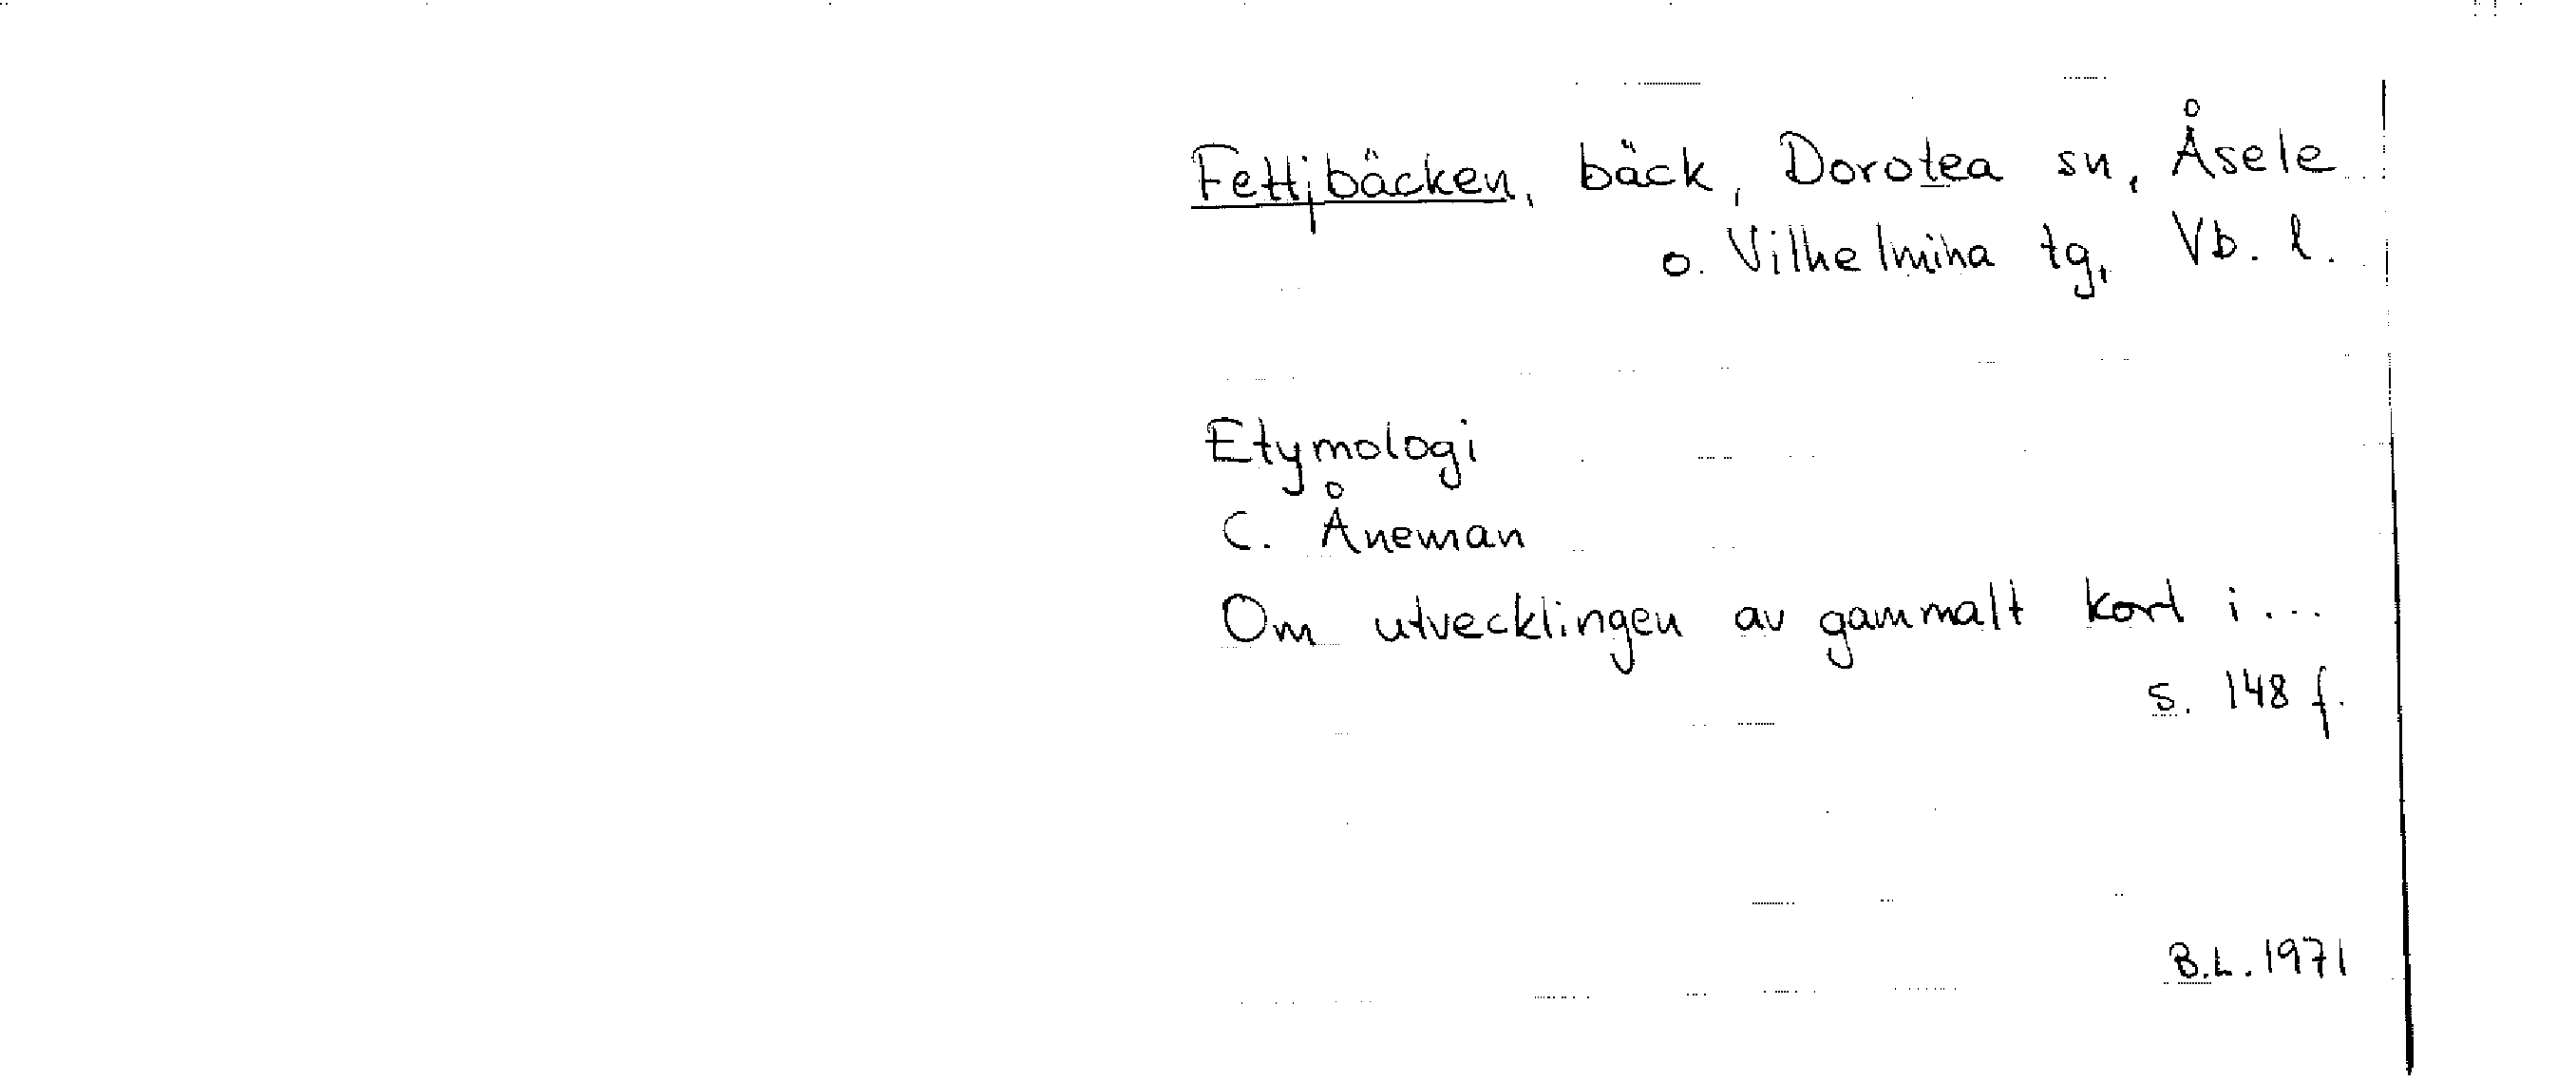 Fettjbäcken, bäck, Dorotea sn, Åsele
o. Vilhelmina tg, Vb. l.
Etymologi
C. Åneman
Om utvecklingen av gammalt kort i...
s. 148 f.
B.L. 1971